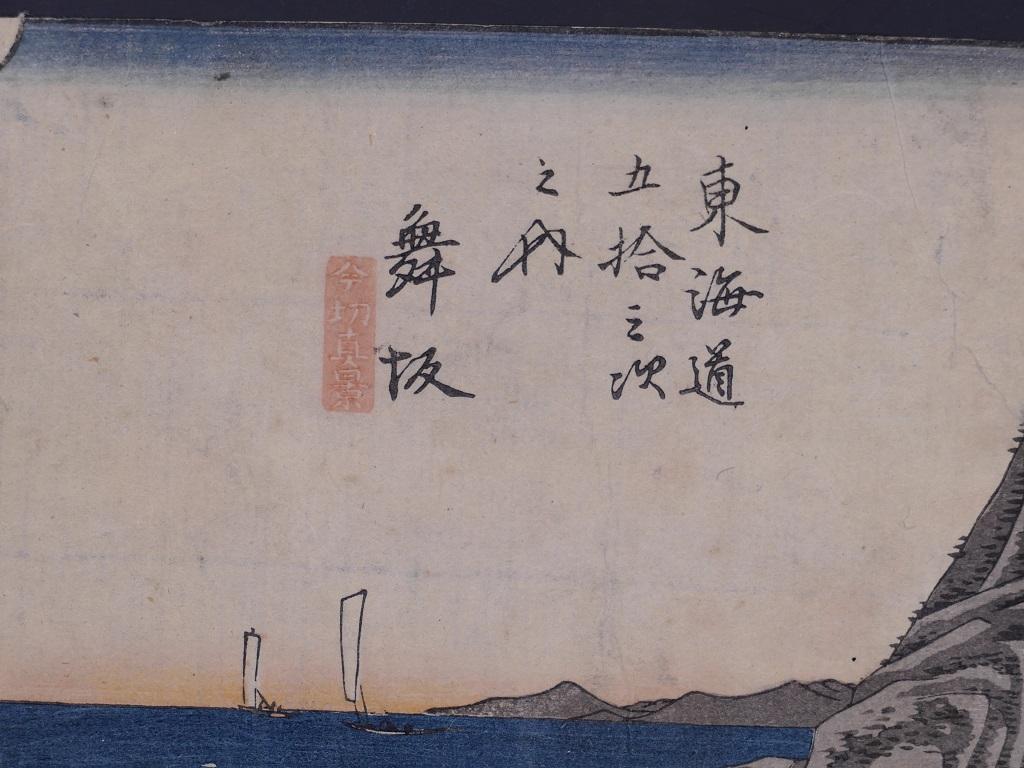 東海道
五拾三次
之内
舞坂
今切真景